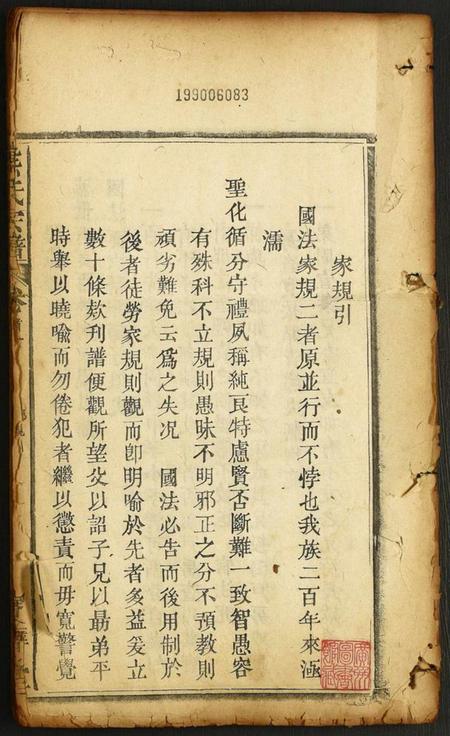 199006083
家規引
國法家規二者原並行而不悖也我族二百年來涵
濡
聖化循分守禮夙稱純良特慮賢否斷難一致智愚容
有殊科不立規則愚昧不明邪正之分不預教則
頑劣難免云爲之失况 國法必吿而後用制於
後者徒勞家規則觀而卽明喻於先者多益爰立
數十條欵刋譜便觀所望父以詔子兄以勗弟平
時舉以曉喻而勿倦犯者繼以懲責而毋寬警覺
氏宗譜 卷